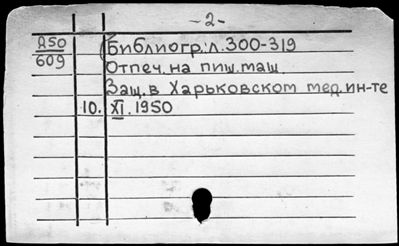 -2-
250 (Библиогр.: л. 300-319
609 Отпеч. на пиш. маш.
Защ. в Харьковском мед. ин-те
10. XI. 1950